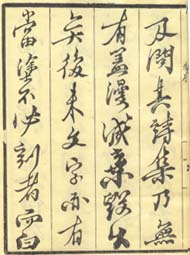 及閱其詩集乃無
有蓋漫滅棄毀久
矣後來文字亦有
當塗不必刻者